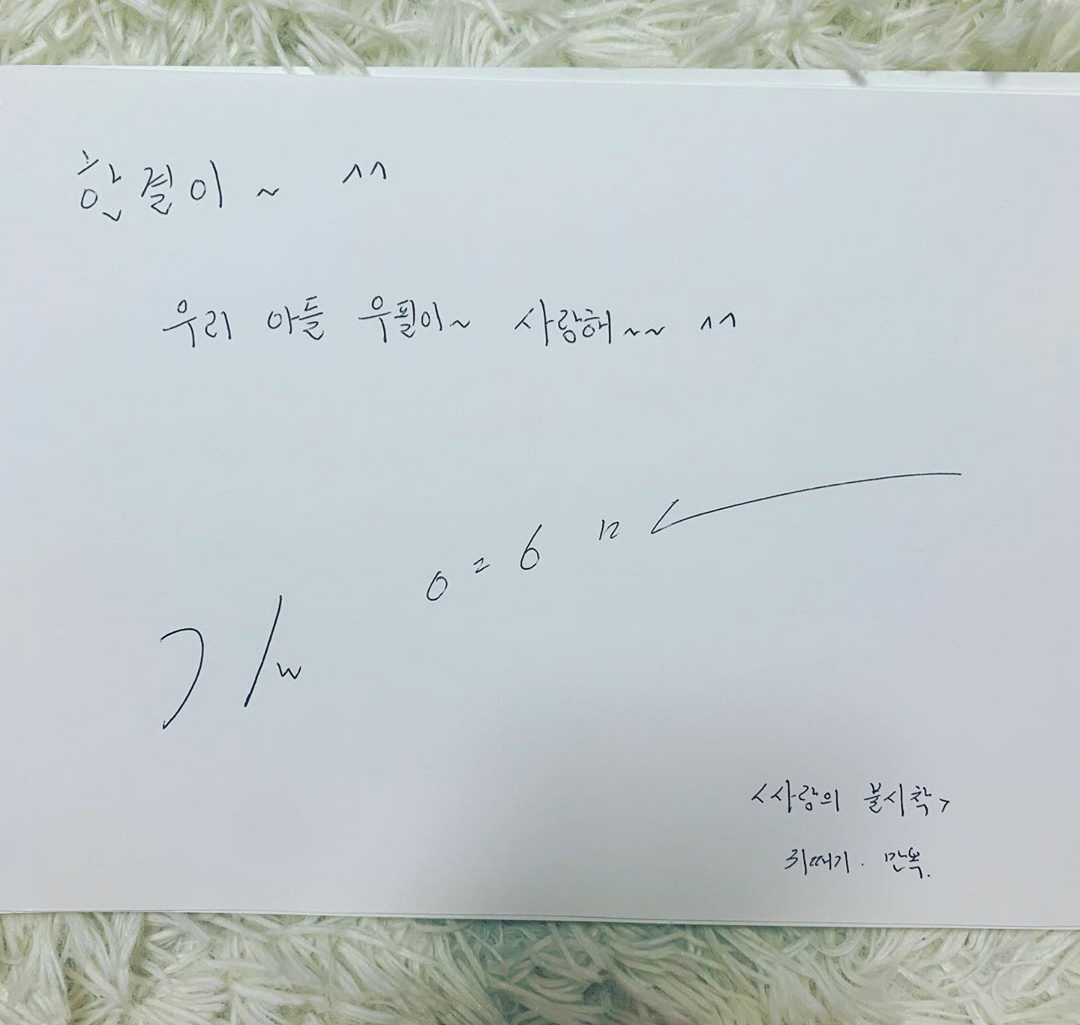 한결이~ ^^
우리 아들 우필이~ 사랑해~~ ^^
<사랑의 불시착>
귀때기. 만복.